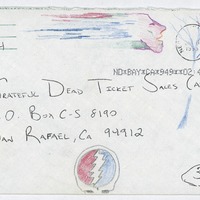 4
ND*BAY*CA*949***02:4
Grateful Dead Ticket Sales Ca
P.O. Box C-S 8190
San Rafael, Ca 94912